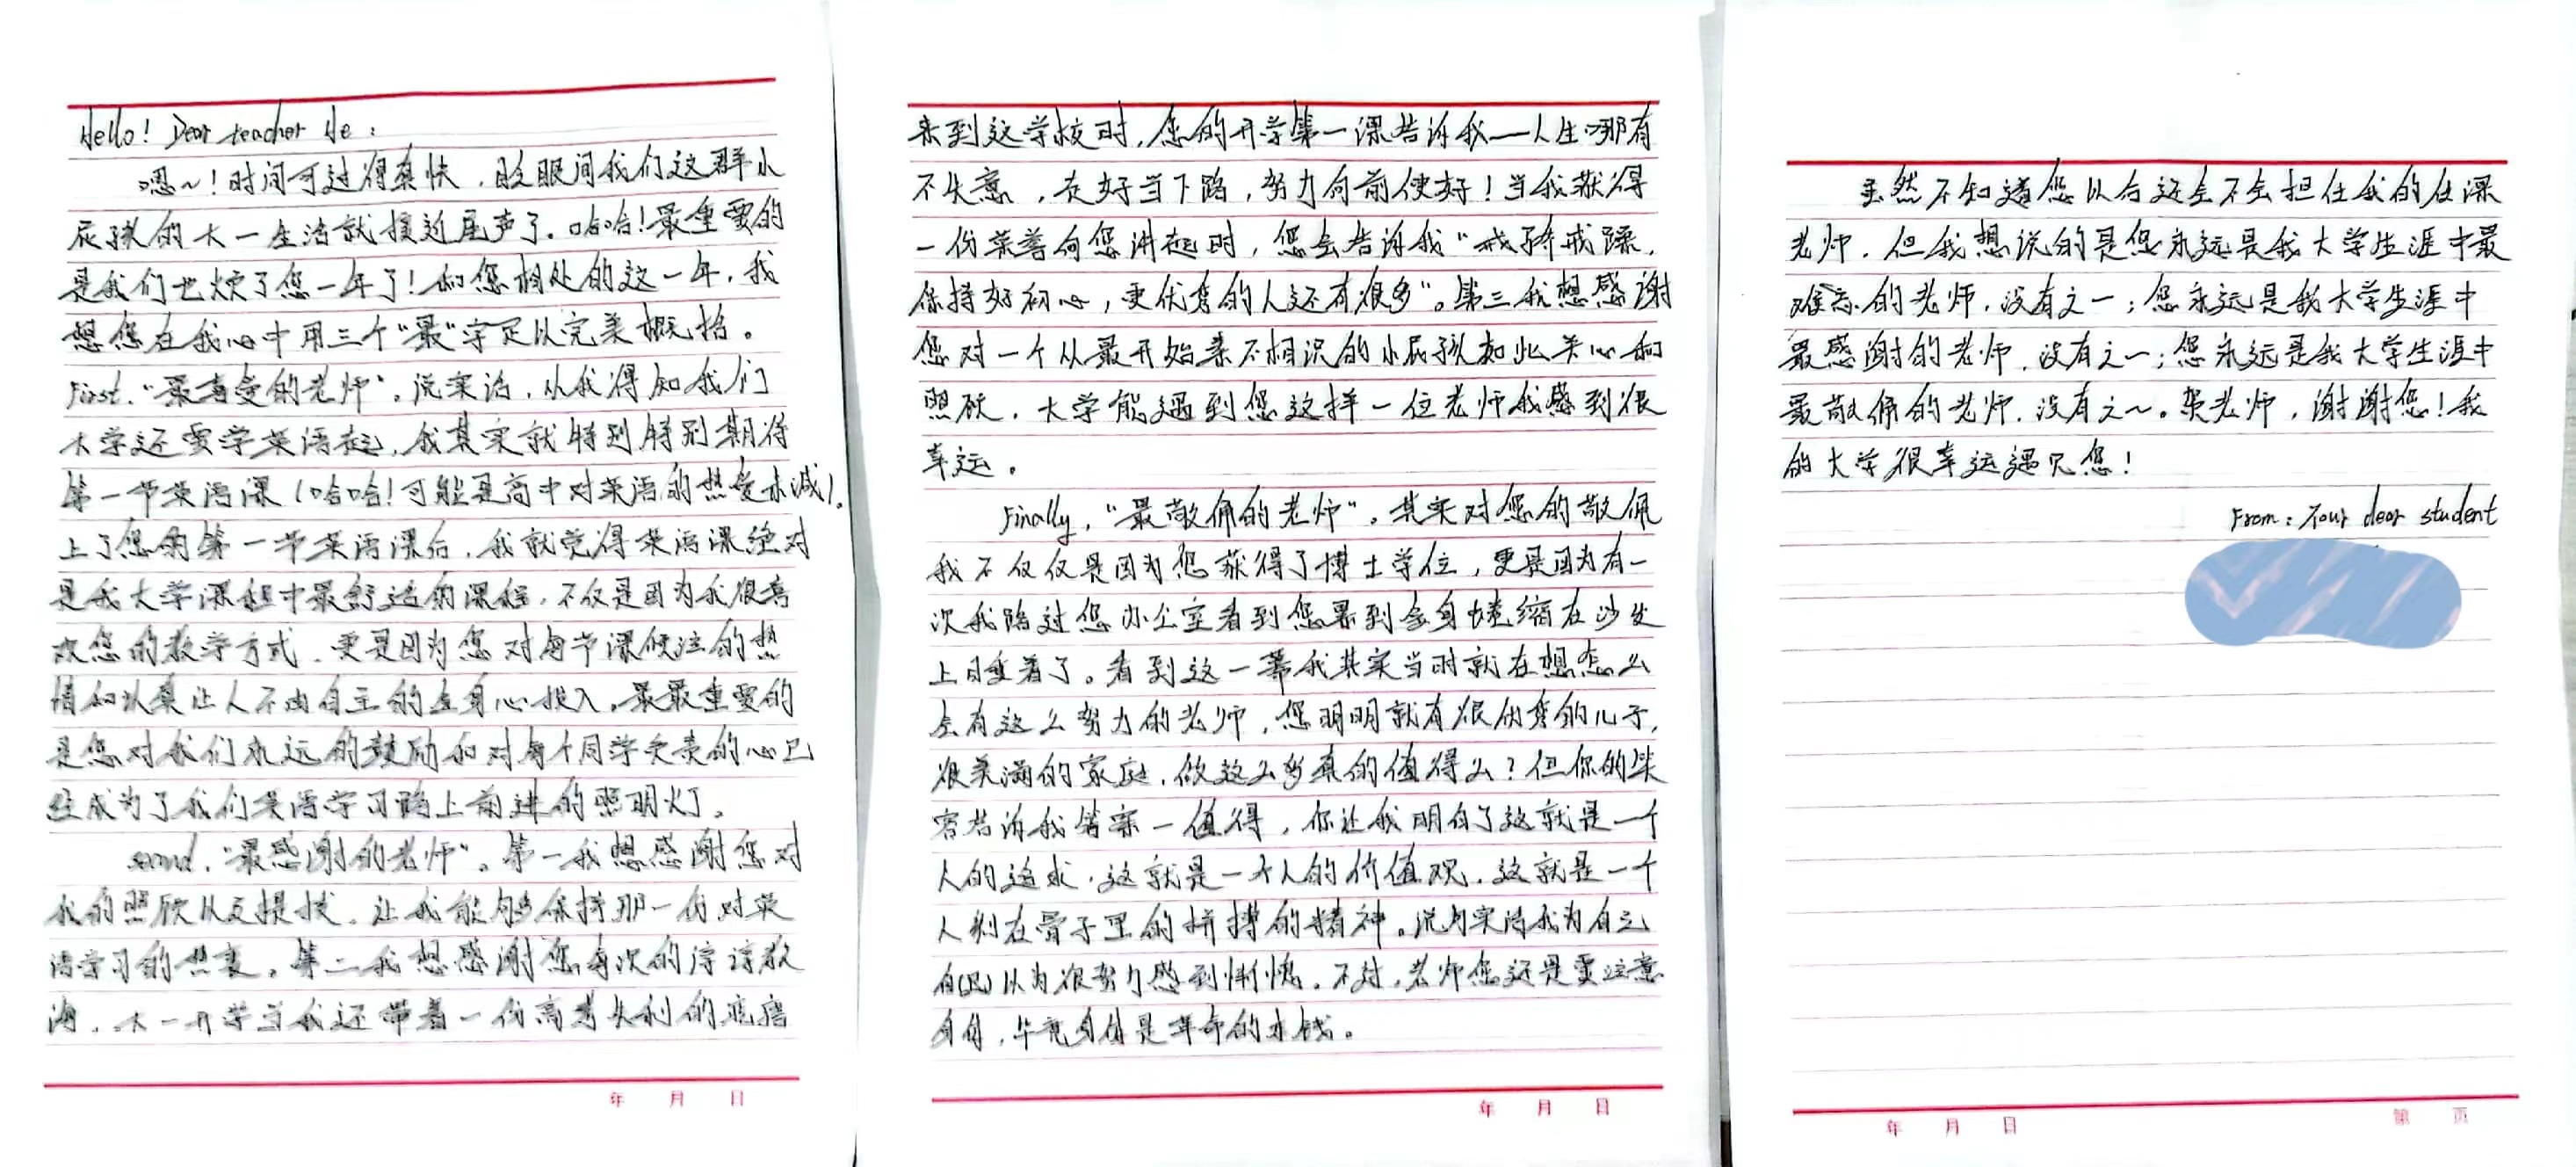 Hello! Dear teacher He:
嗯~!时间可过得真快,眨眼间我们这群小
屁孩的大一生活就接近尾声了。哈哈!最重要的
是我们也烦了您一年了!和您相处的这一年,我
想您在我心中用三个"最"字足以完美概括。
First."最喜爱的老师"。说实话,从我得知我们
大学还要学英语起,我其实就特别特别期待
第一节英语课(哈哈!可能是高中对英语的热爱未减)。
上了您的第一节英语课后,我就觉得英语课绝对
是我大学课程中最舒适的课程,不仅是因为我很喜
欢您的教学方式,更是因为您对每节课倾注的热
情和认真让人不由自主的全身心投入。最最重要的
是您对我们永远的鼓励和对每个同学负责的心已
经成为了我们英语学习路上前进的照明灯。
second."最感谢的老师"。第一我想感谢您对
我的照顾以及提拔,让我能够保持那一份对英
语学习的热衷。第二我想感谢您每次的谆谆教
诲,大一开学当我还带着一份高考失利的
来到这学校时,您的开学第一课告诉我—人生哪有
不失意,走好当下路,努力向前便好!当我获得
一份荣誉向您讲起时,您会告诉我"戒骄戒躁,
保持好初心,更优秀的人还有很多"。第三我想感谢
您对一个从最开始素不相识的小屁孩如此关心和
照顾,大学能遇到您这样一位老师我感到很
幸运。
Finally,"最敬佩的老师"。其实对您的敬佩
我不仅仅是因为您获得了博士学位,更是因为有一
次我路过您办公室看到您累到全身蜷缩在沙发
上睡着了。看到这一幕我其实当时就在想怎么
会有这么努力的老师,您明明就有很优秀的儿子,
很美满的家庭,做这么多真的值得么?但你的笑
容告诉我答案—值得,你让我明白了这就是一个
人的追求,这就是一个人的价值观,这就是一个
人刻在骨子里的拼搏的精神。说句实话我为自己
自(以)以为很努力感到惭愧。不过,老师您还是要注意
身体,毕竟身体是革命的本钱。
虽然不知道您以后还会不会担任我的任课
老师,但我想说的是您永远是我大学生涯中最
难忘的老师,没有之一;您永远是我大学生涯中
最感谢的老师,没有之一;您永远是我大学生涯中
最敬佩的老师,没有之一。贺老师,谢谢您!我
的大学很幸运遇见您!
From: Your dear student
年 月 日
年 月 日
年 月 日 第 页